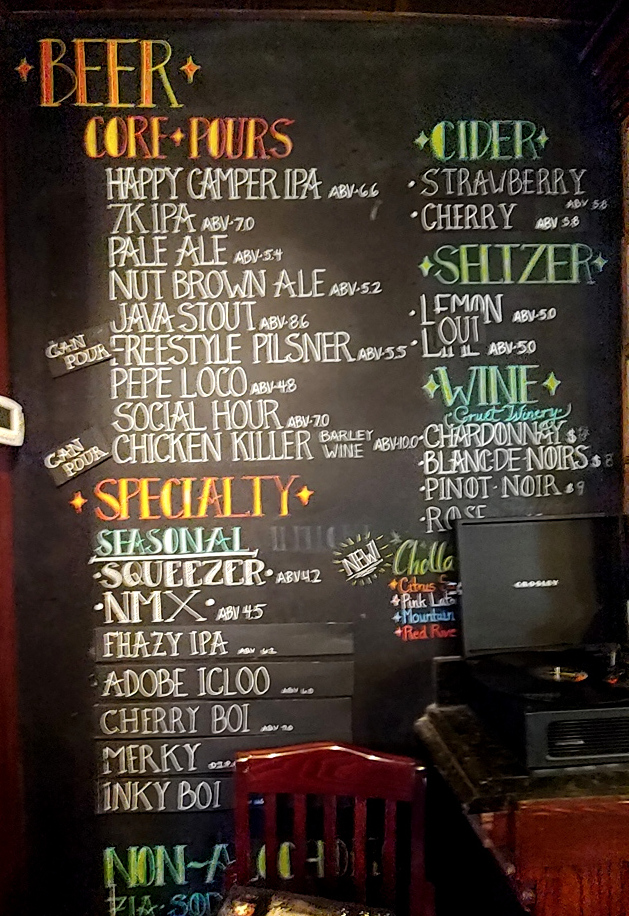 BEER
CORE POURS
HAPPY CAMPER IPA ABV-6.6
7K IPA ABV-7.0
PALE ALE ABV-5.4
NUT BROWN ALE ABV-5.2
JAVA STOUT ABV-8.6
CAN POUR
FREESTYLE PILSNER ABV-5.5
PEPE LOCO ABV-4.8
SOCIAL HOUR ABV-7.0
CAN POUR
CHICKEN KILLER BARLEY WINE ABV-10.0
SPECIALTY
SEASONAL
SQUEEZER ABV 4.2
NMX ABV 4.5
FHAZY IPA ABV 6.2
ADOBE IGLOO ABV
CHERRY BOI ABV
MERKY
INKY BOI
NON-A
ZIA SOD
CIDER
STRAWBERRY ABV 5.8
CHERRY ABV 5.8
SELTZER
LEMON ABV-5.0
ABV-5.0
WINE
Gruet Winery
CHARDONNAY $
BLANC-DE NOIRS $8
PINOT-NOIR $9
ROSE
NEW
Cholla
Citrus
Pink
Mountain
Red
CROSLEY